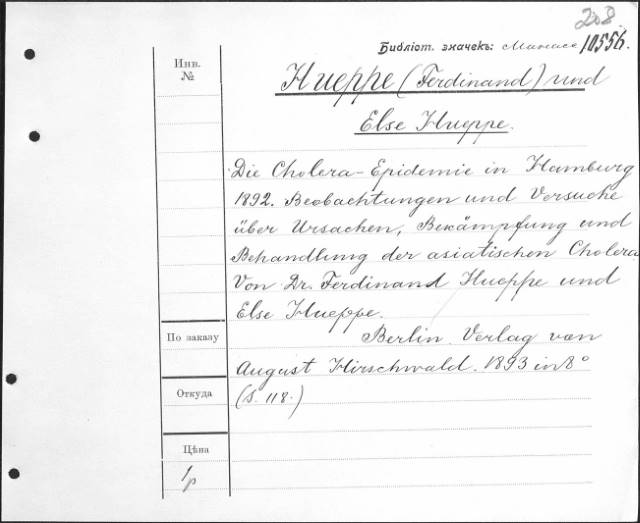 208.
Библіот. значекъ: Манасе 10556.
Инв.
№
Hueppe (Ferdinand) und
Else Hueppe.
Die Cholera-Epidemie in Hamburg
1892. Beobachtungen und Versuche
über Ursachen, Bekämpfung und
Behandlung der asiatischen Cholera
Von Dr. Ferdinand Hueppe und
Else Hueppe.
По заказу
Berlin. Verlag von
August Hirschwald. 1893 in 8°
Откуда
(S. 118.)
Цѣна
1/p